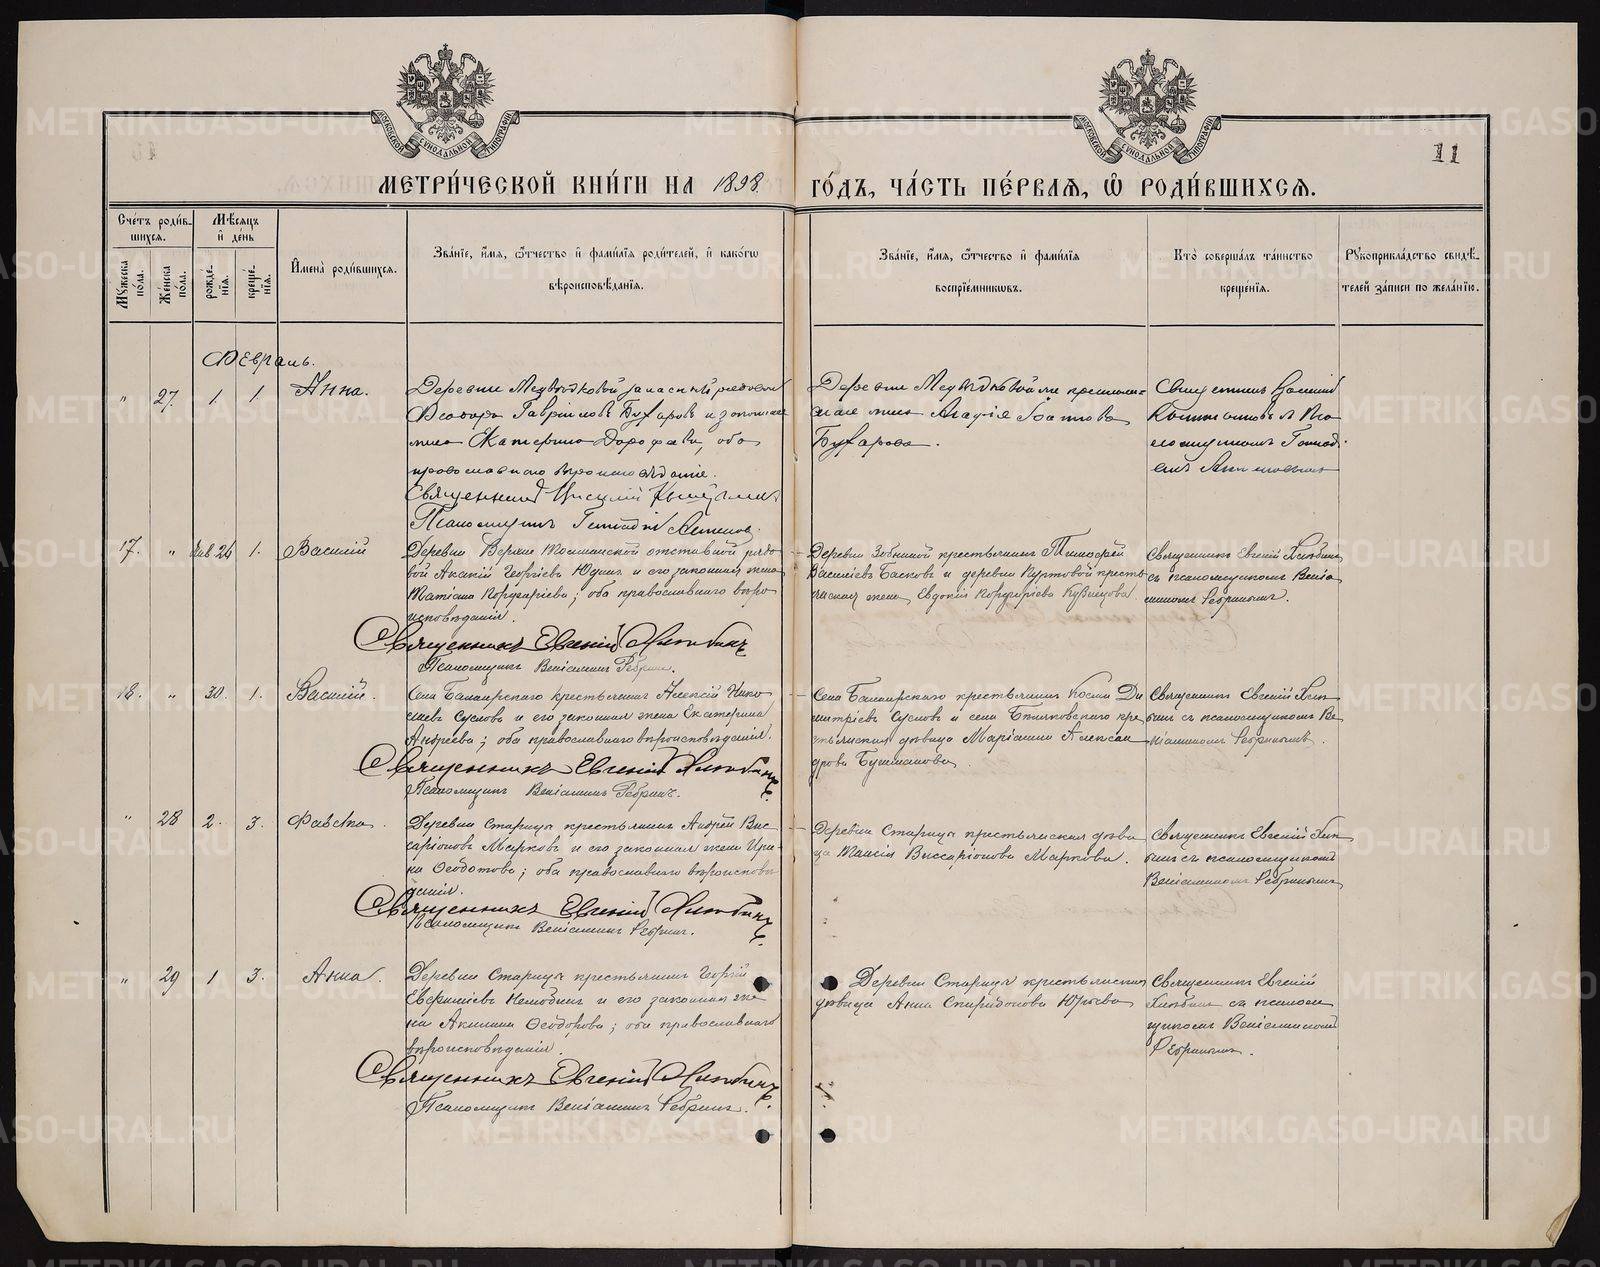 11
МОСКОВСКОЙ СѴНОДАЛЬНОЙ ТИПОГРАФІИ
МОСКОВСКОЙ СѴНОДАЛЬНОЙ ТИПОГРАФІИ
МЕТРИ́ЧЕСКОЙ КНИ́ГИ НА 1898 ГО́ДЪ, ЧА́СТЬ ПЕ́РВАЯ, Ѡ РОДИ́ВШИХСѦ.
Сче́тъ роди́в-
шихся.
Мѣ́сяцъ
и де́нь
Мꙋ́жеска по́ла.
Же́нска по́ла.
рожде́нїя.
креще́нїя.
Имена̀ роди́вшихся.
Зва́нїе, и́мя, ѻ́тчество и фами́лїя роди́телей, и како́гѡ
вѣроисповѣ́данїя.
Зва́нїе, и́мя, ѻ́тчество и фами́лїя
воспрїе́мникѡвъ.
Кто̀ соверша́лъ та́инство
креще́нїя.
Рꙋкоприкла́дство свидѣ́-
телей за́писи по жела́нїю.
Февраль.
" 27. 1 1 Анна.
Деревни Медвѣдковой запасный рядовой
Ѳеодоръ Гавріиловъ Бухаровъ и законная
жена Екатерина Дорофѣева, оба
православнаго вѣроисповѣданія.
Священникъ
Псаломщикъ Геннадій
Деревни Медвѣдковой
Агафія
Бухарова.
Священникъ
17. " Янв 24 1. Василій
Деревни Верхне отставной рядо-
вой Георгіевъ Юдинъ и его законная жена
Татіана Порфиріева; оба православнаго вѣро-
исповѣданія.
Священникъ Евгеній Хлыбинъ
Псаломщикъ Веніаминъ Ребринъ.
Деревни Зобниной крестьянинъ Тимоѳей
Василіевъ Басковъ и деревни Куртовой кресть-
янская жена Евдокія Порфиріева Кузнецова.
Священникъ Евгеній Хлыбинъ
съ псаломщикомъ Веніа-
миномъ Ребринымъ.
18. " 30. 1. Василій.
Села Балаирскаго крестьянинъ Алексій Нико-
лаевъ Сусловъ и его законная жена Екатерина
Андреева; оба православнаго вѣроисповѣданія.
Священникъ Евгеній Хлыбинъ
Псаломщикъ Веніаминъ Ребринъ.
Села Балаирскаго крестьянинъ Косма Ди-
митріевъ Сусловъ и села кре-
стьянская дѣвица Маріамна Алексан-
дрова Бушманова.
Священникъ Евгеній Хлы-
бинъ съ псаломщикомъ Ве-
ніаминомъ Ребринымъ.
" 28 2. 3. Фавста.
Деревни Старицы крестьянинъ Андрей Вис-
саріоновъ Марковъ и его законная жена Ири-
на Ѳеодотова; оба православнаго вѣроисповѣ-
данія.
Священникъ Евгеній Хлыбинъ
Псаломщикъ Веніаминъ Ребринъ.
Деревни Старицы крестьянская дѣви-
ца Таисія Виссаріонова Маркова.
Священникъ Евгеній Хлы-
бинъ съ псаломщикомъ
Веніаминомъ Ребринымъ
" 29 1 3. Анна.
Деревни Старицы крестьянинъ Георгій
и его законная же-
на Акилина Ѳеодорова; оба православнаго
вѣроисповѣданія.
Священникъ Евгеній Хлыбинъ
Псаломщикъ Веніаминъ Ребринъ.
Деревни Старицы крестьянская
дѣвица Анна Спиридонова Юрьева
Священникъ Евгеній
Хлыбинъ съ псалом-
щикомъ Веніаминомъ
Ребринымъ.
METRIKI.GASO-URAL.RU